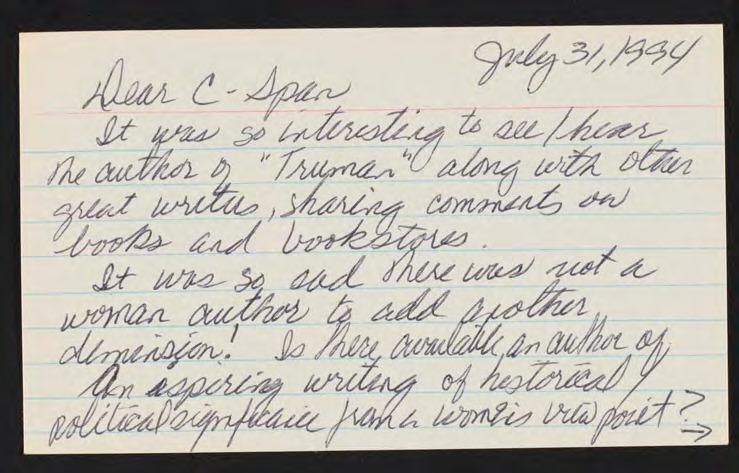 July 31, 1994
Dear C-Span
It was so interesting to see/hear
the author of "Truman" along with other
great writers, sharing comments on
books and bookstores.
It was so sad there was not a
woman author to add another
demension! Is there available, an author of
An aspiring writing of historical/
political significance from a woman's view point?
→